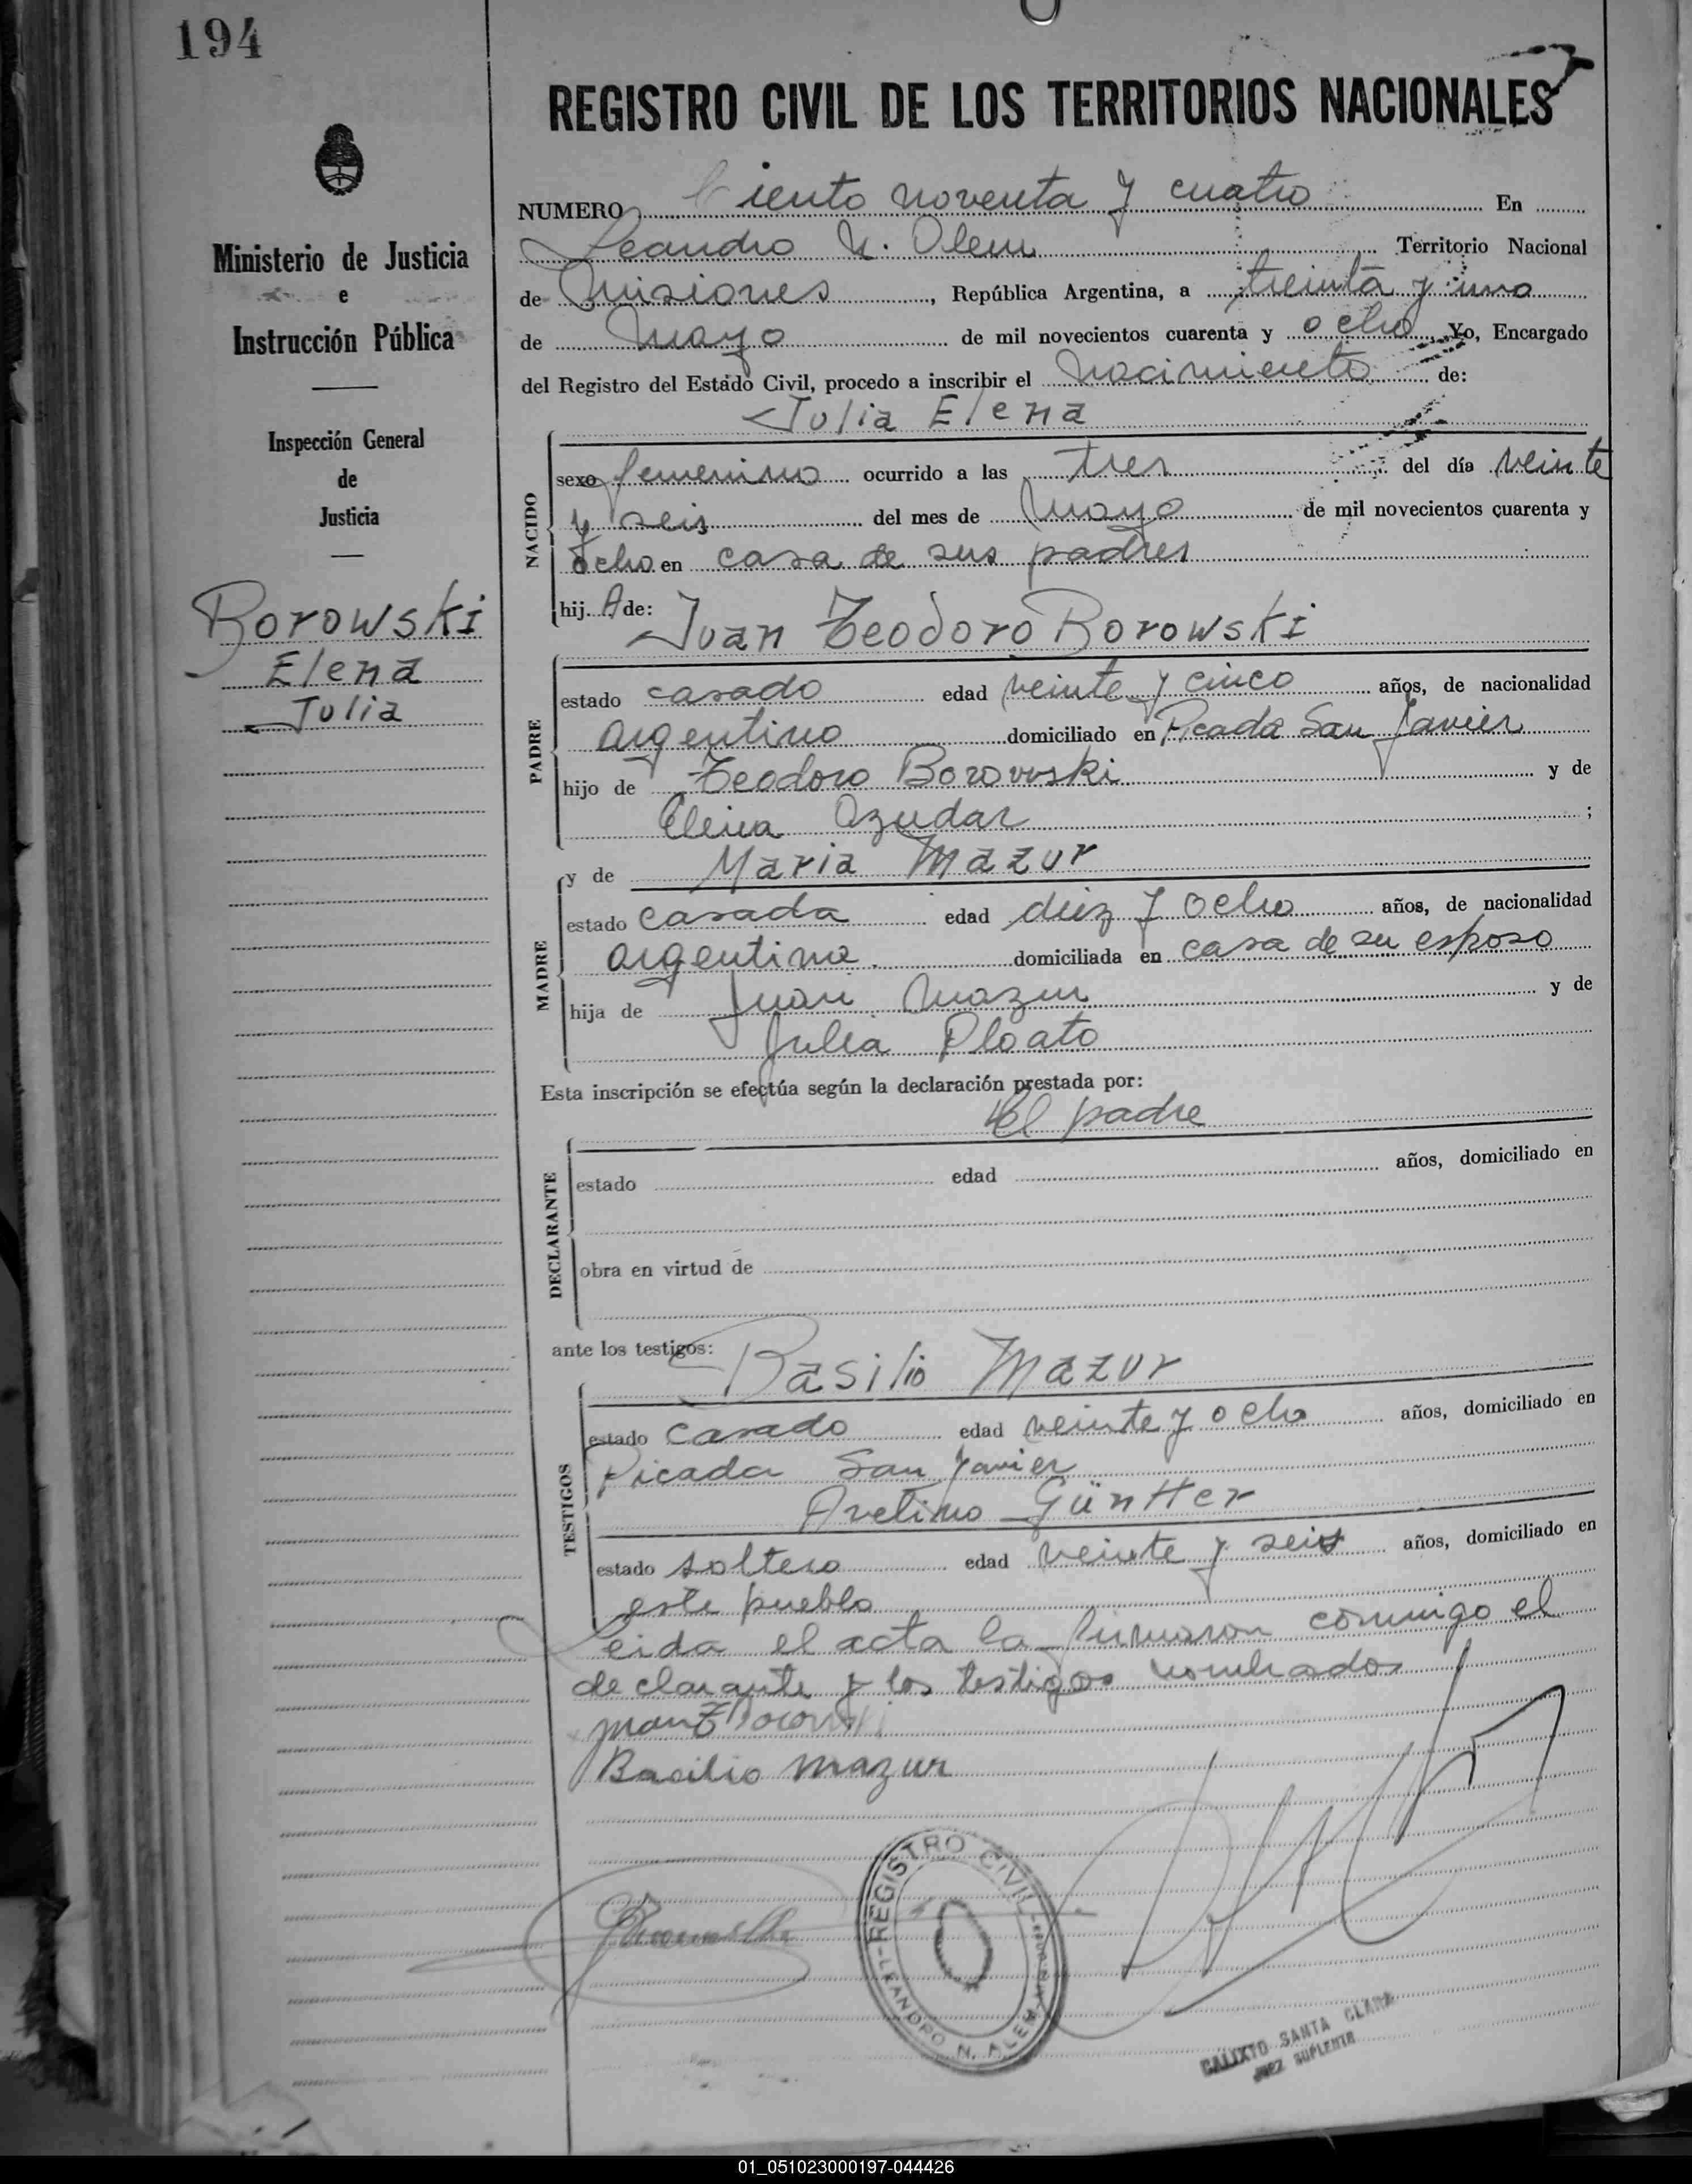 194
REGISTRO CIVIL DE LOS TERRITORIOS NACIONALES
Ministerio de Justicia
e
Instrucción Pública
Inspección General
de
Justicia
Borowski
Elena
Julia
NUMERO Ciento noventa y cuatro En
Leandro N. Alem Territorio Nacional
de Misiones, República Argentina, a treinta y uno
de Mayo de mil novecientos cuarenta y ocho Yo, Encargado
del Registro del Estado Civil, procedo a inscribir el nacimiento de:
Julia Elena
NACIDO
sexo femenino ocurrido a las tres del día veinte
y seis del mes de Mayo de mil novecientos cuarenta y
ocho en casa de sus padres
hij. A de: Juan Teodoro Borowski
PADRE
estado casado edad veinte y cinco años, de nacionalidad
argentino domiciliado en Picada San Javier
hijo de Teodoro Borowski y de
Elena Ozudar ;
y de Maria Mazur
MADRE
estado casada edad diez y ocho años, de nacionalidad
argentina. domiciliada en casa de su esposo
hija de Juan Mazur y de
Julia Ploato
Esta inscripción se efectúa según la declaración prestada por:
El padre
DECLARANTE
estado edad años, domiciliado en
obra en virtud de
ante los testigos: Basilio Mazur
TESTIGOS
estado casado edad veinte y ocho años, domiciliado en
Picada San Javier
Avelino Günther
estado soltero edad veinte y seis años, domiciliado en
este pueblo
Leida el acta la firmaron conmigo el
declarante y los testigos nombrados
Basilio Mazur
REGISTRO CIVIL
LEANDRO N. ALEM
CALIXTO SANTA CLARA
JUEZ SUPLENTE
01_051023000197-044426